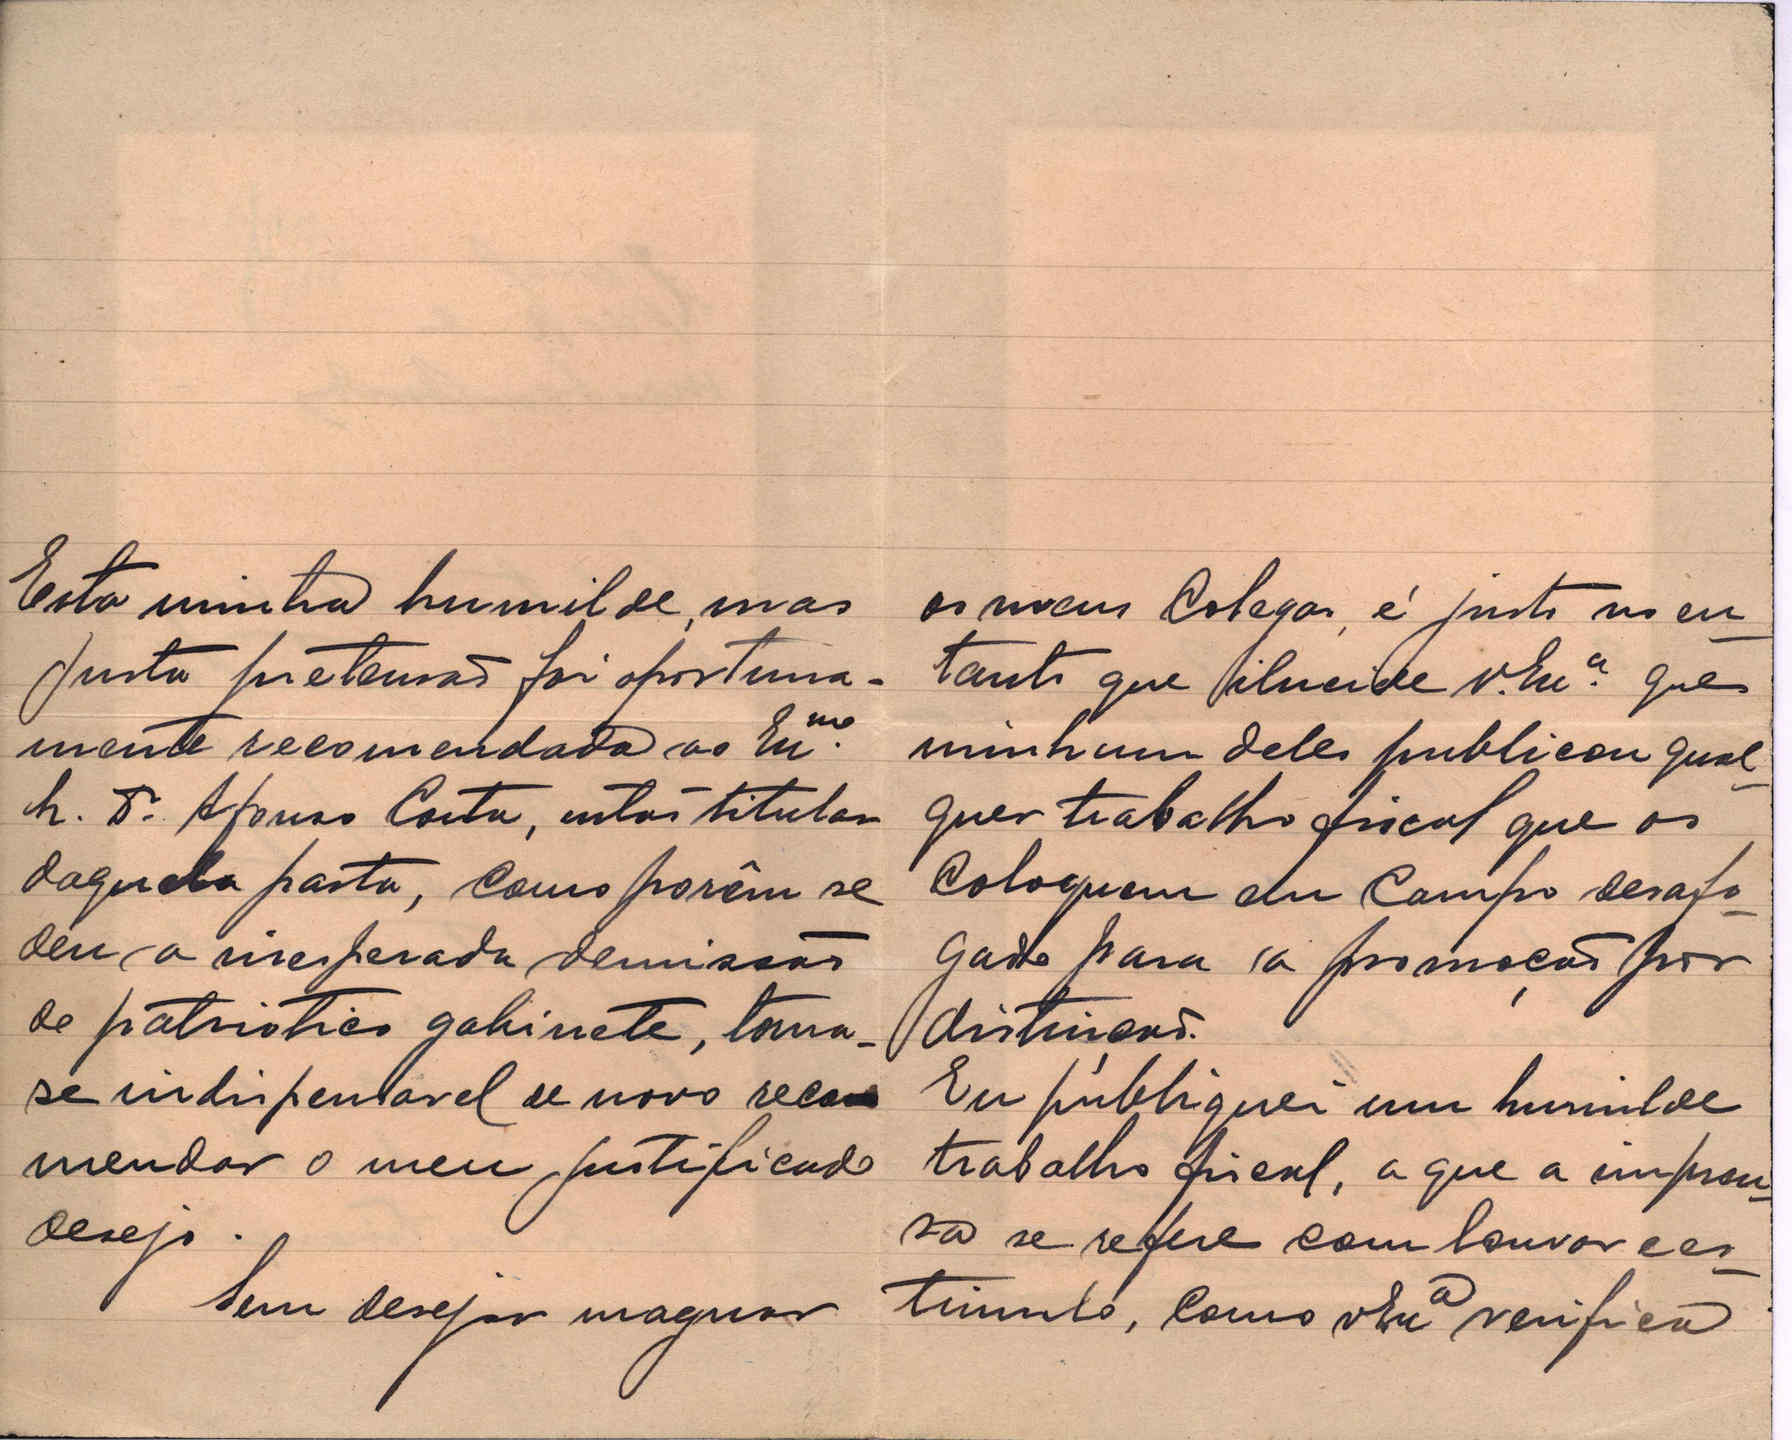 Esta minha humilde, mas
justa pretensão foi oportuna-
mente recomendada ao Exmo.
Sr. Dr. Afonso Costa, então titular
daquela pasta, como porêm se
deu a inesperada demissão
de patriotico gabinete, torna-
se indispensavel de novo recom
mendar o meu justificado
desejo.
Sem desejar maguar
os meus Colegas, é justo no en-
tanto que ilucide V. Exª. que
ninhum deles publicou qual-
quer trabalho fiscal que os
Coloquem em Campo desafo-
gado para a promoção por
distinção.
Eu públiquei um humilde
trabalho fiscal, a que a impren-
sa se refere com louvor e es-
timulo, como V Exª verifica